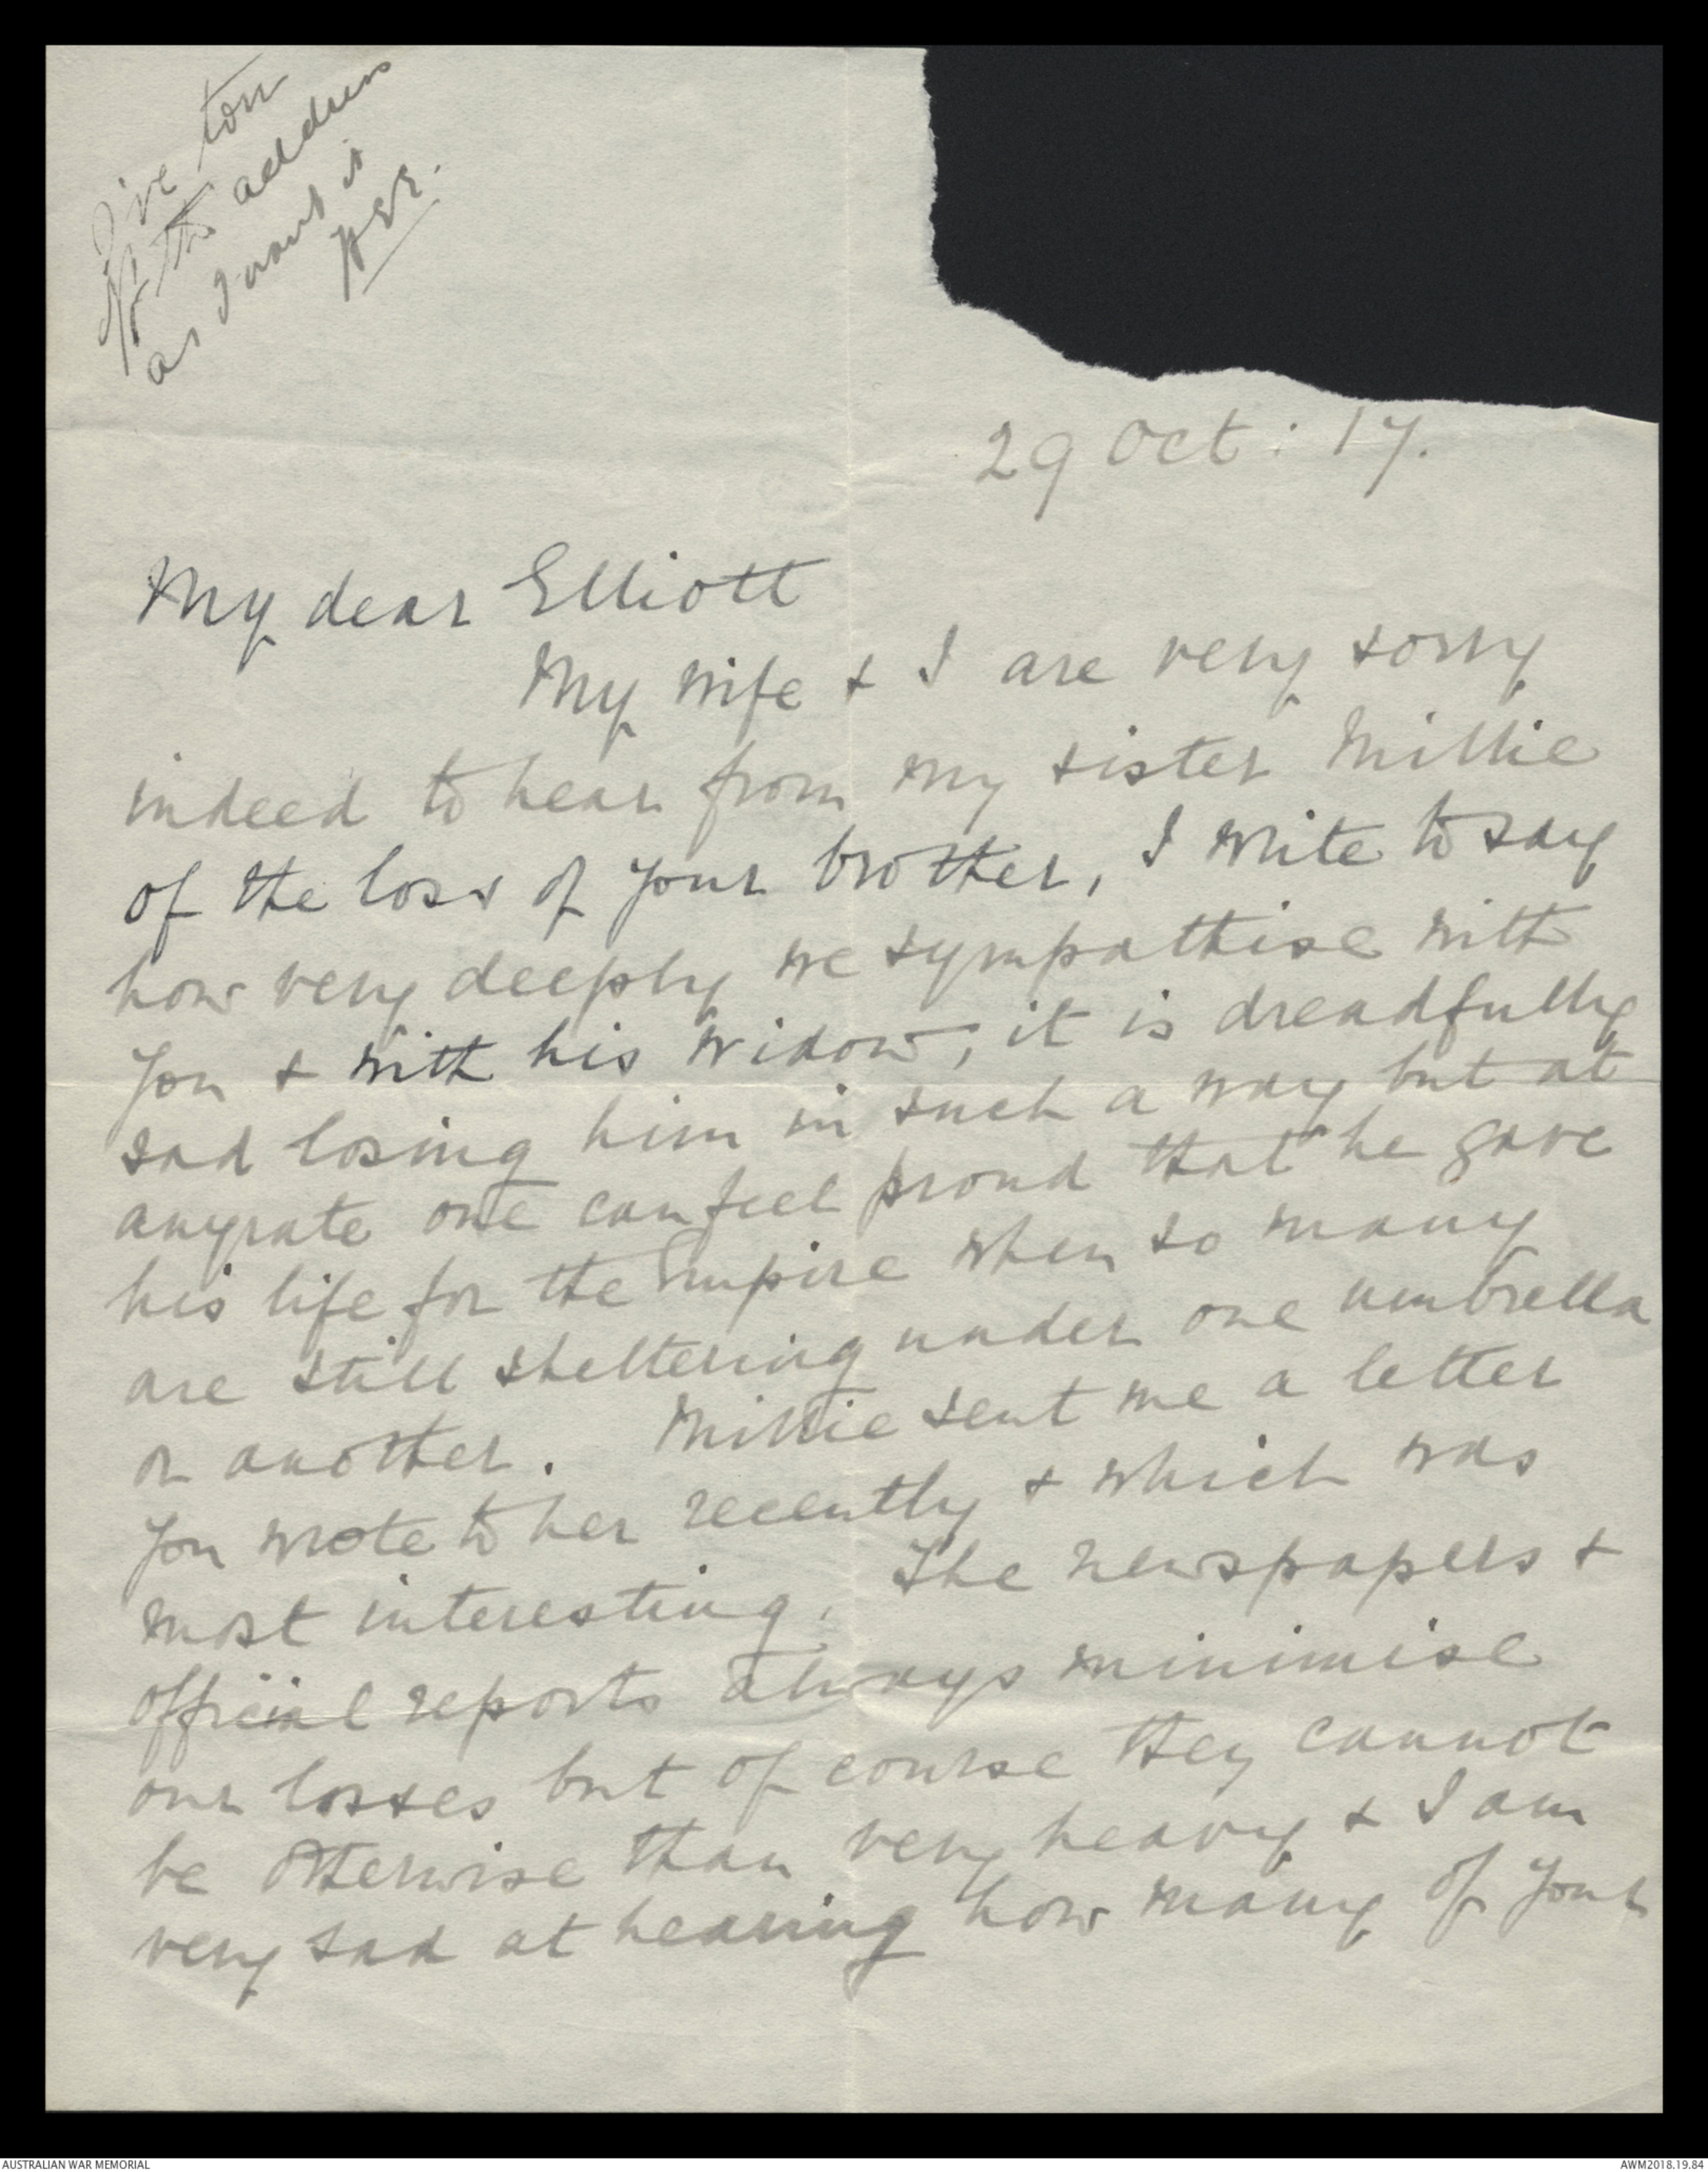 I've torn
off the address
as I want it
HEE.
29 Oct: 17.
My dear Elliott
My wife & I are very sorry
indeed to hear from my sister Millie
of the loss of your brother, I write to say
how very deeply we sympathise with
you & with his widow, it is dreadfully
sad losing him in such a way but at
anyrate one can feel proud that he gave
his life for the Empire when so many
are still sheltering under one umbrella
or another. Millie sent me a letter
you wrote to her recently & which was
most interesting. The newspapers &
official reports always minimise
our losses but of course they cannot
be otherwise than very heavy & I am
very sad at hearing how many of your
AUSTRALIAN WAR MEMORIAL
AWM2018.19.84